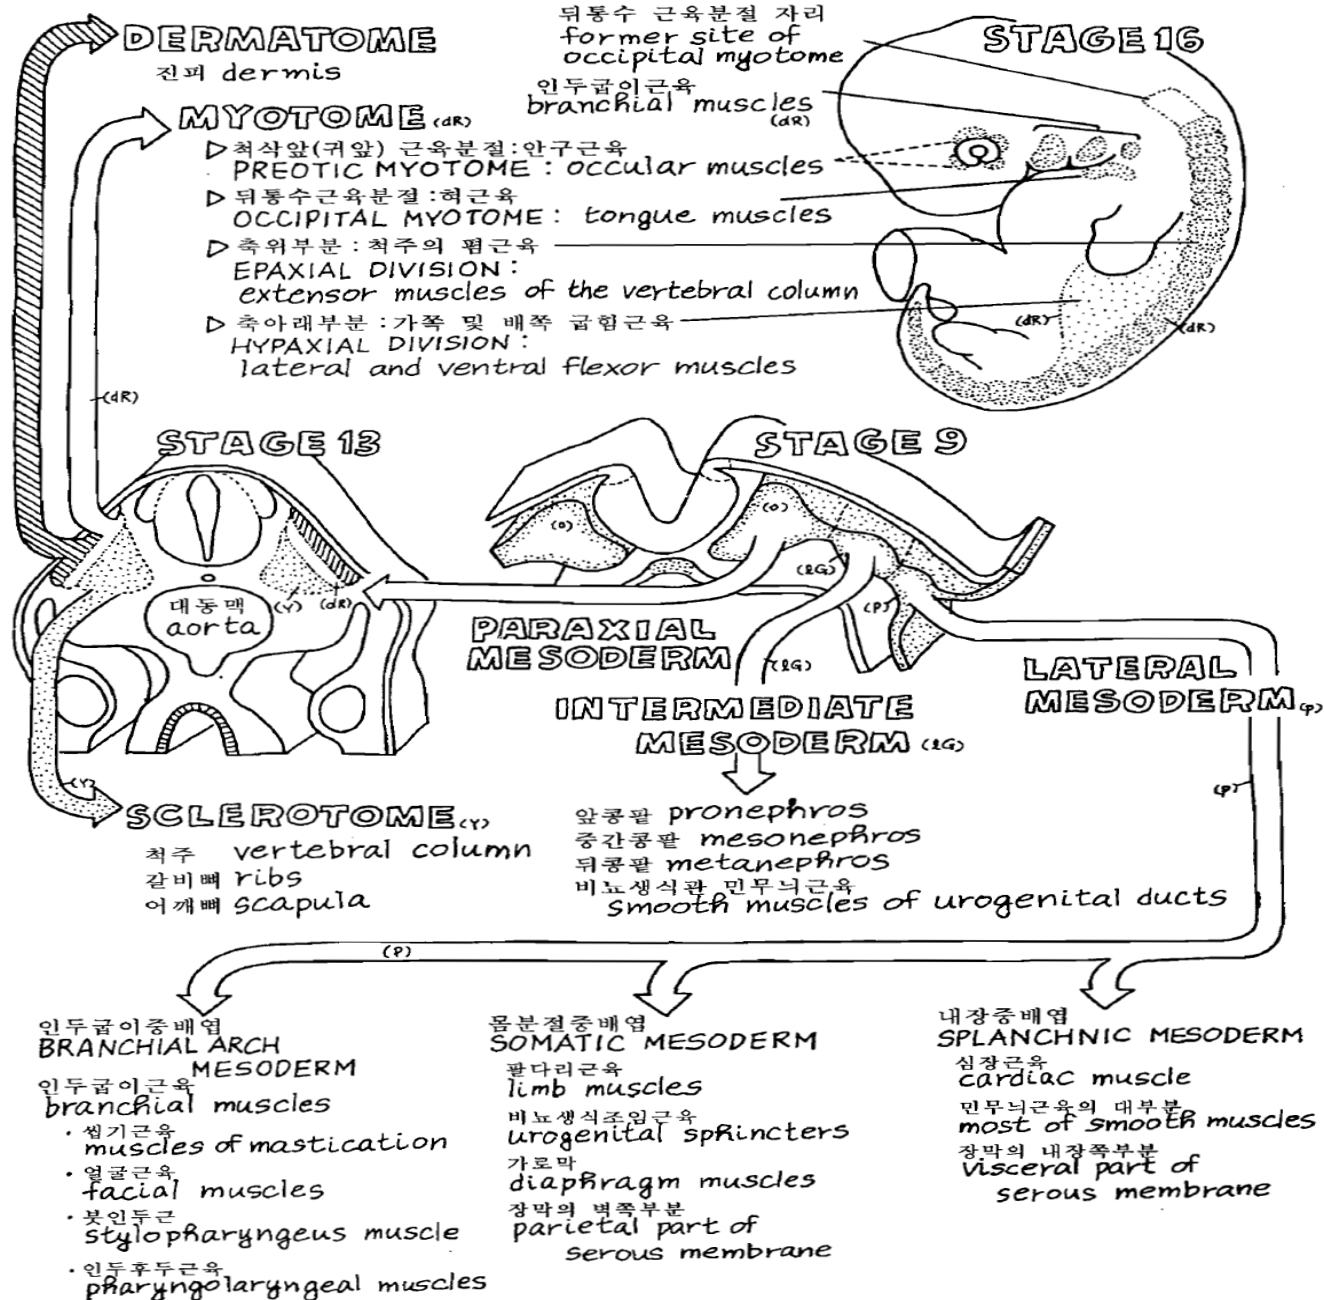 DERMATOME
진피 dermis
MYOTOME (dR)
▷ 척삭앞(귀앞) 근육분절:안구근육
PREOTIC MYOTOME : occular muscles
▷ 뒤통수근육분절:혀근육
OCCIPITAL MYOTOME : tongue muscles
▷ 축위부분 : 척주의 폄근육
EPAXIAL DIVISION :
extensor muscles of the vertebral column
▷ 축아래부분 :가쪽 및 배쪽 굽힘근육
HYPAXIAL DIVISION :
lateral and ventral flexor muscles
뒤통수 근육분절 자리
former site of
occipital myotome
인두굽이근육
branchial muscles
(dR)
STAGE 16
(dR)
(dR)
(dR)
STAGE 13
대동맥
aorta
(Y)
(dR)
STAGE 9
(o)
(o)
(lG)
(P)
PARAXIAL
MESODERM
(lG)
INTERMEDIATE
MESODERM (lG)
LATERAL
MESODERM (P)
(P)
(Y)
SCLEROTOME (Y)
척주 vertebral column
갈비뼈 ribs
어깨뼈 scapula
앞콩팥 pronephros
중간콩팥 mesonephros
뒤콩팥 metanephros
비뇨생식관 민무늬근육
smooth muscles of urogenital ducts
(P)
인두굽이중배엽
BRANCHIAL ARCH
MESODERM
인두굽이근육
branchial muscles
· 씹기근육
muscles of mastication
· 얼굴근육
facial muscles
· 붓인두근
stylopharyngeus muscle
· 인두후두근육
pharyngolaryngeal muscles
몸분절중배엽
SOMATIC MESODERM
팔다리근육
limb muscles
비뇨생식조임근육
urogenital sphincters
가로막
diaphragm muscles
장막의 벽쪽부분
parietal part of
serous membrane
내장중배엽
SPLANCHNIC MESODERM
심장근육
cardiac muscle
민무늬근육의 대부분
most of smooth muscles
장막의 내장쪽부분
visceral part of
serous membrane